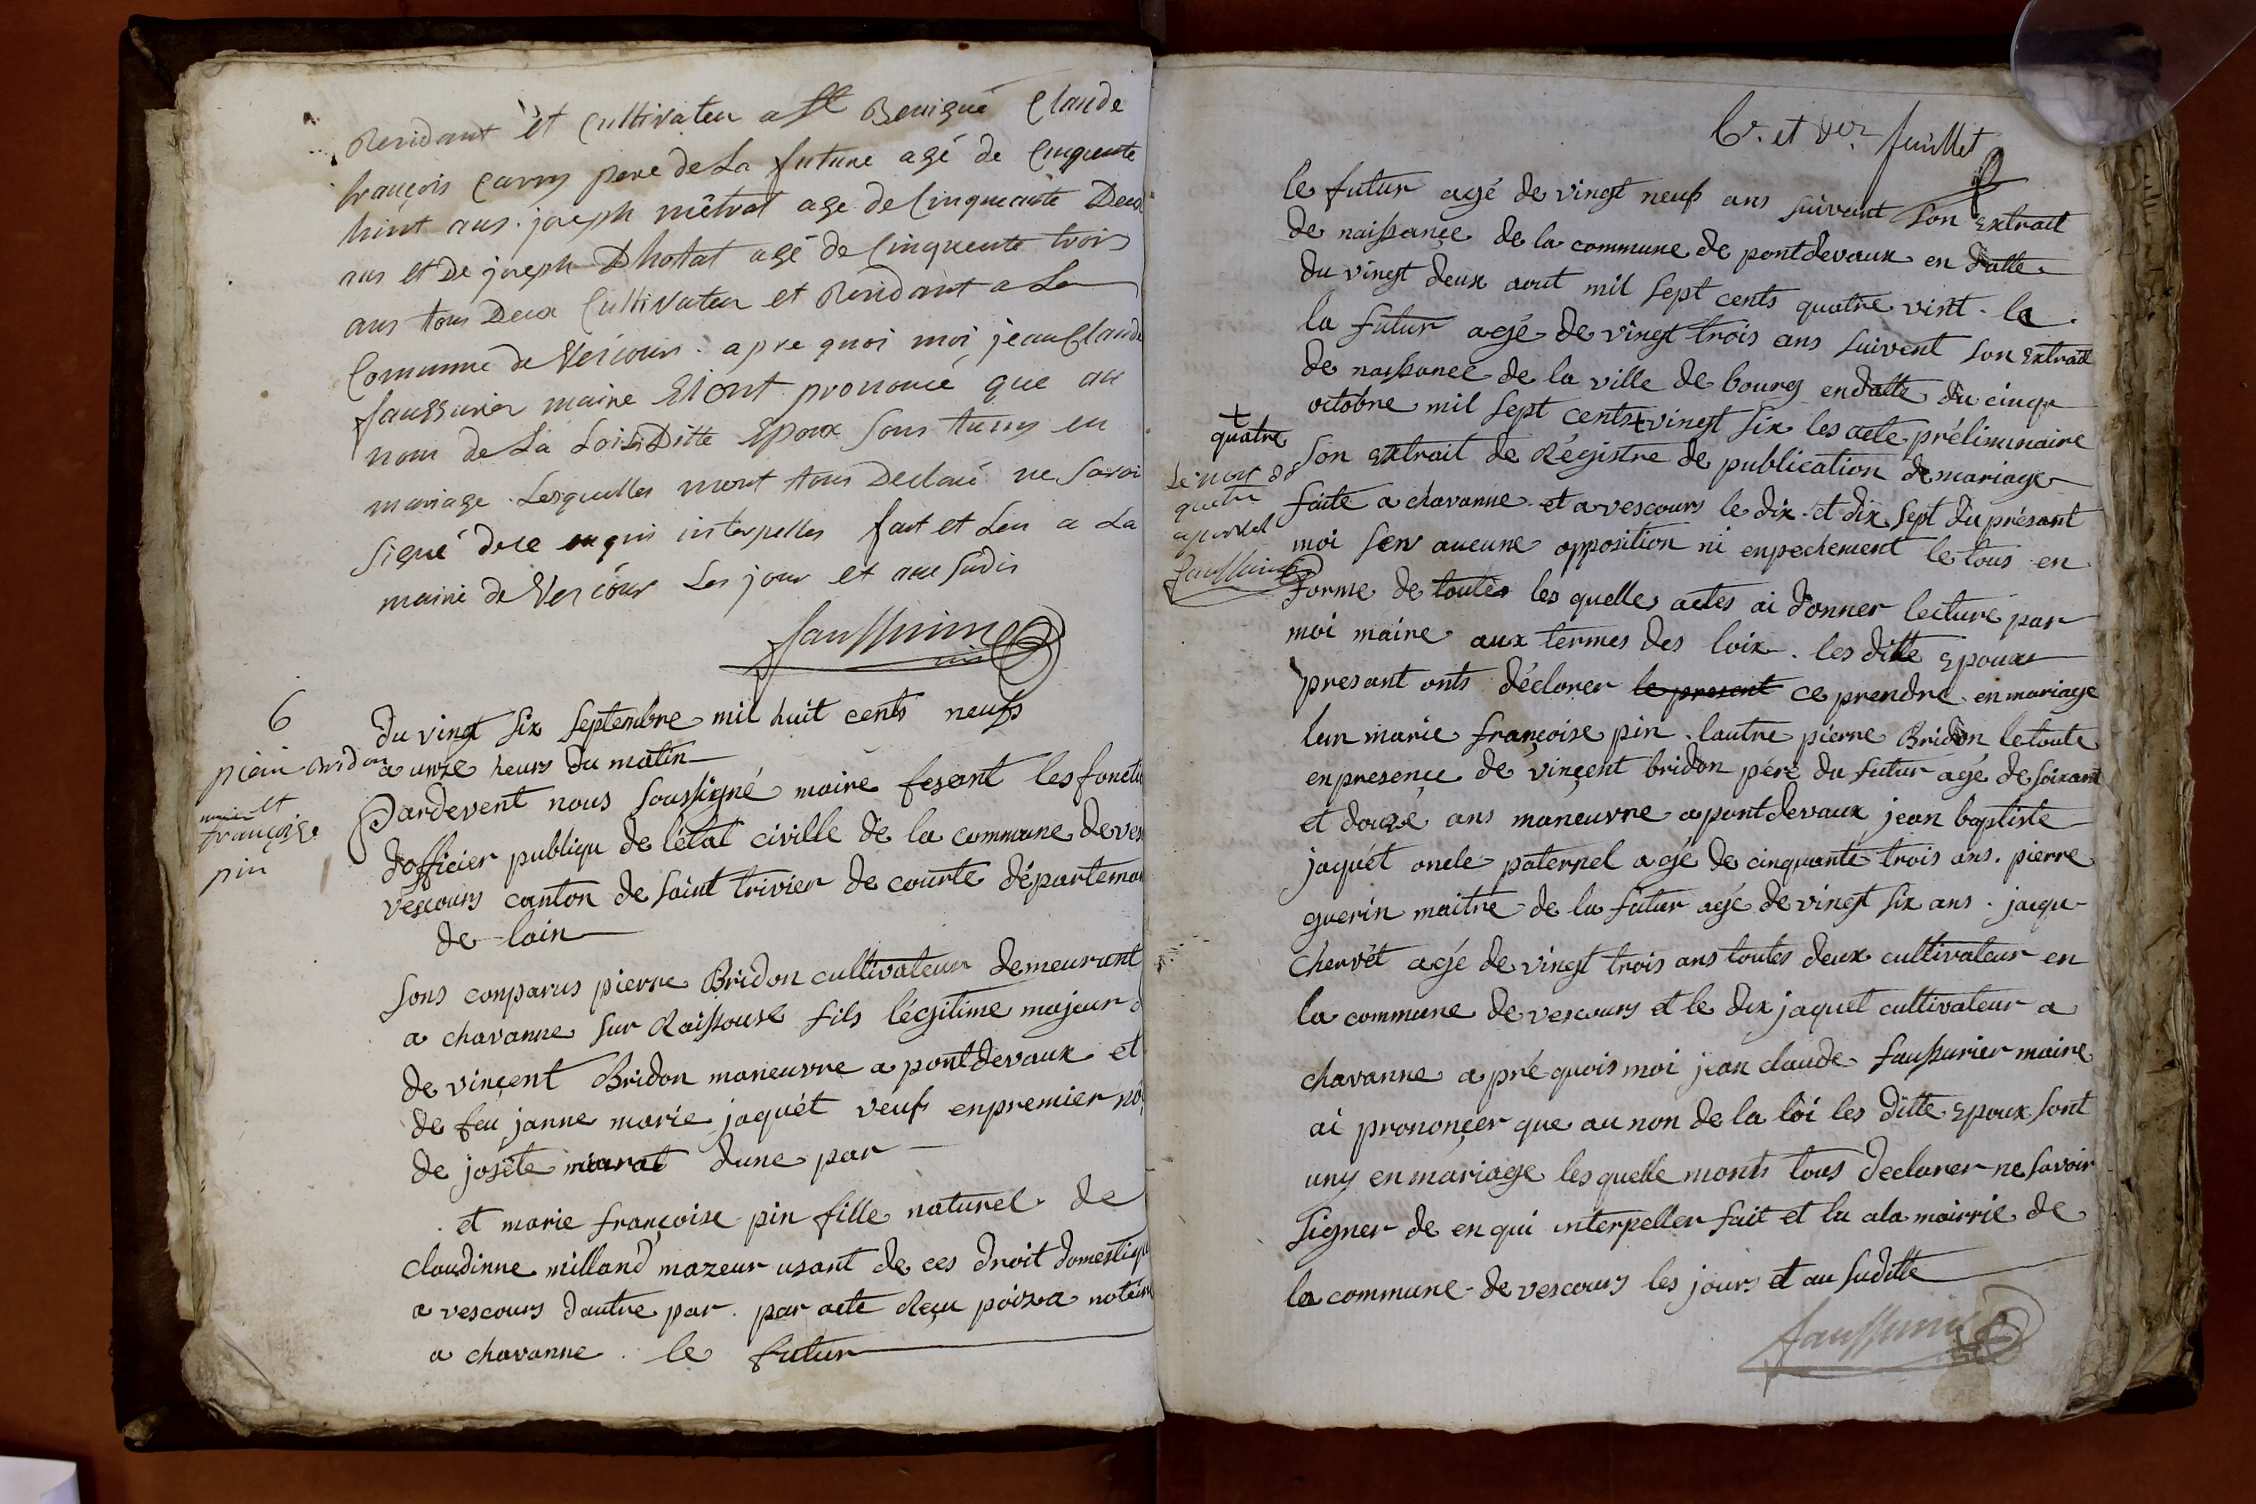 Residant et Cultivateu a St Benigne Claude
françois Carry pere de La future agé de Cinquente
huint ans . joseph métrat age de Cinqueante Deux
ans et De joseph Dhostat agé de Cinquente trois
ans tous Deux Cultivateu et Residant a La
Commune de Vescours . apre quoi moi jean Claude
faussurier maire Et ont prononcé que au
nom de La Loi Les Ditte Epoux Sons tunis en
mariage . Lesquelles mont tous Declaré ne Savoi
Signé de ce enquis interpelles fait et Leu a La
mairie de Vescour Les jour et ans Sudis
faussurier
6
pieire Bridon
et
marie
françoise
pin
du vingt Six Septembre mil huit cents neufs
a unze heurs du matin
Pardevent nous Soussigné maire fesant les foncti
dofficier publiqu de létat civille de la commune de ves
vescours canton de Saint trivier de courte départemen
de lain
Sons conparus pierre Bridon cultivateur demeurant
a chavanne Sur Raissouse fils légitime majeur d
de vinçent Bridon maneuvre a pontdevaux et
de feu janne marie jaquét veufs enpremier nó
de joséte miarat dune par
et marie françoise pin fille naturel de
claudinne milland mazeur usant de ces droit domestiqu
a vescours dautre par . par acte Reçu poiza notéir
a chavanne . le futur
6e. et der. feuillet
le futur agé de vingt neufs ans Suivant Son Extrait
de naissançe de la commune de pontdevaux en datte
du vingt deux aout mil Sept cents quatre vint . la
la futur agé de vingt trois ans Suivent Son Extrait
de naissance de la ville de bourg endatte du cinq
octobre mil Sept cents + vingt Six les acte préliminaire
+
quatre
Le mot de
quatre
aprouvé
faussurier
Son Extrait de Régistre de publication de mariage
faite a chavanne et a vescours le dix et dix Sept du présant
moi Sen aucune opposition ni enpechement le tous en
forme de toutes les quelles actes ai donner lecture par
moi maire aux termes des loix . les ditte Epoux
présant onts déclarer le present ce prendre en mariage
lun marie françoise pin . lautre pierre Bridon letoute
enpresençe de vinçent bridon pére du futur agé de Soixant
et douzé ans maneuvre a pontdevaux jean baptiste
jaquét oncle paternel agé de cinquante trois ans . pierre
guerin maitre de la futur agé de vingt Six ans . jacqu
chervét agé de vingt trois ans toutes deux cultivateur en
la commune de vescours et le dix jaquet cultivateur a
chavanne a pré quois moi jean claude faussurier maire
ai prononçer que au non de la loi les ditte Epoux Sont
uny en mariage lesquelle monts tous declarer ne Savoir
Signer de en qui interpeller fait et lu ala mairrie de
la commune de vescours les jours et au Suditte
faussurier